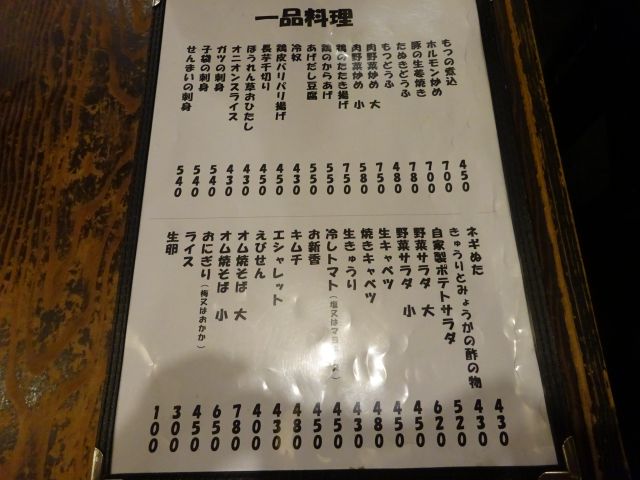 一品料理
もつの煮込 450
ホルモン炒め 700
豚の生姜焼き 700
たぬきどうふ 780
もつどうふ 480
肉野菜炒め 大 750
肉野菜炒め 小 580
鶏のたたき揚げ 750
鶏のからあげ 550
あげだし豆腐 550
冷奴 430
鶏皮パリパリ揚げ 450
長芋千切り 450
ほうれん草おひたし 430
オニオンスライス 430
ガツの刺身 540
子袋の刺身 540
せんまいの刺身 540
ネギぬた 430
きゅうりとみょうがの酢の物 430
自家製ポテトサラダ 520
野菜サラダ 大 620
野菜サラダ 小 450
生キャベツ 450
焼きキャベツ 480
生きゅうり 430
冷しトマト(塩又はマヨネーズ) 450
お新香 450
キムチ 480
エシャレット 430
えびせん 400
オム焼そば 大 780
オム焼そば 小 650
おにぎり(梅又はおかか) 450
ライス 300
生卵 100